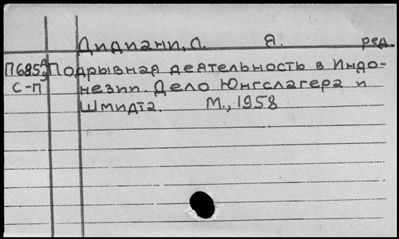 Дидиани, Л. Я. ред.
П685 Подрывная деятельность в Индо-
С-П незии. Дело Юнгслагера и
Шмидта. М., 1958